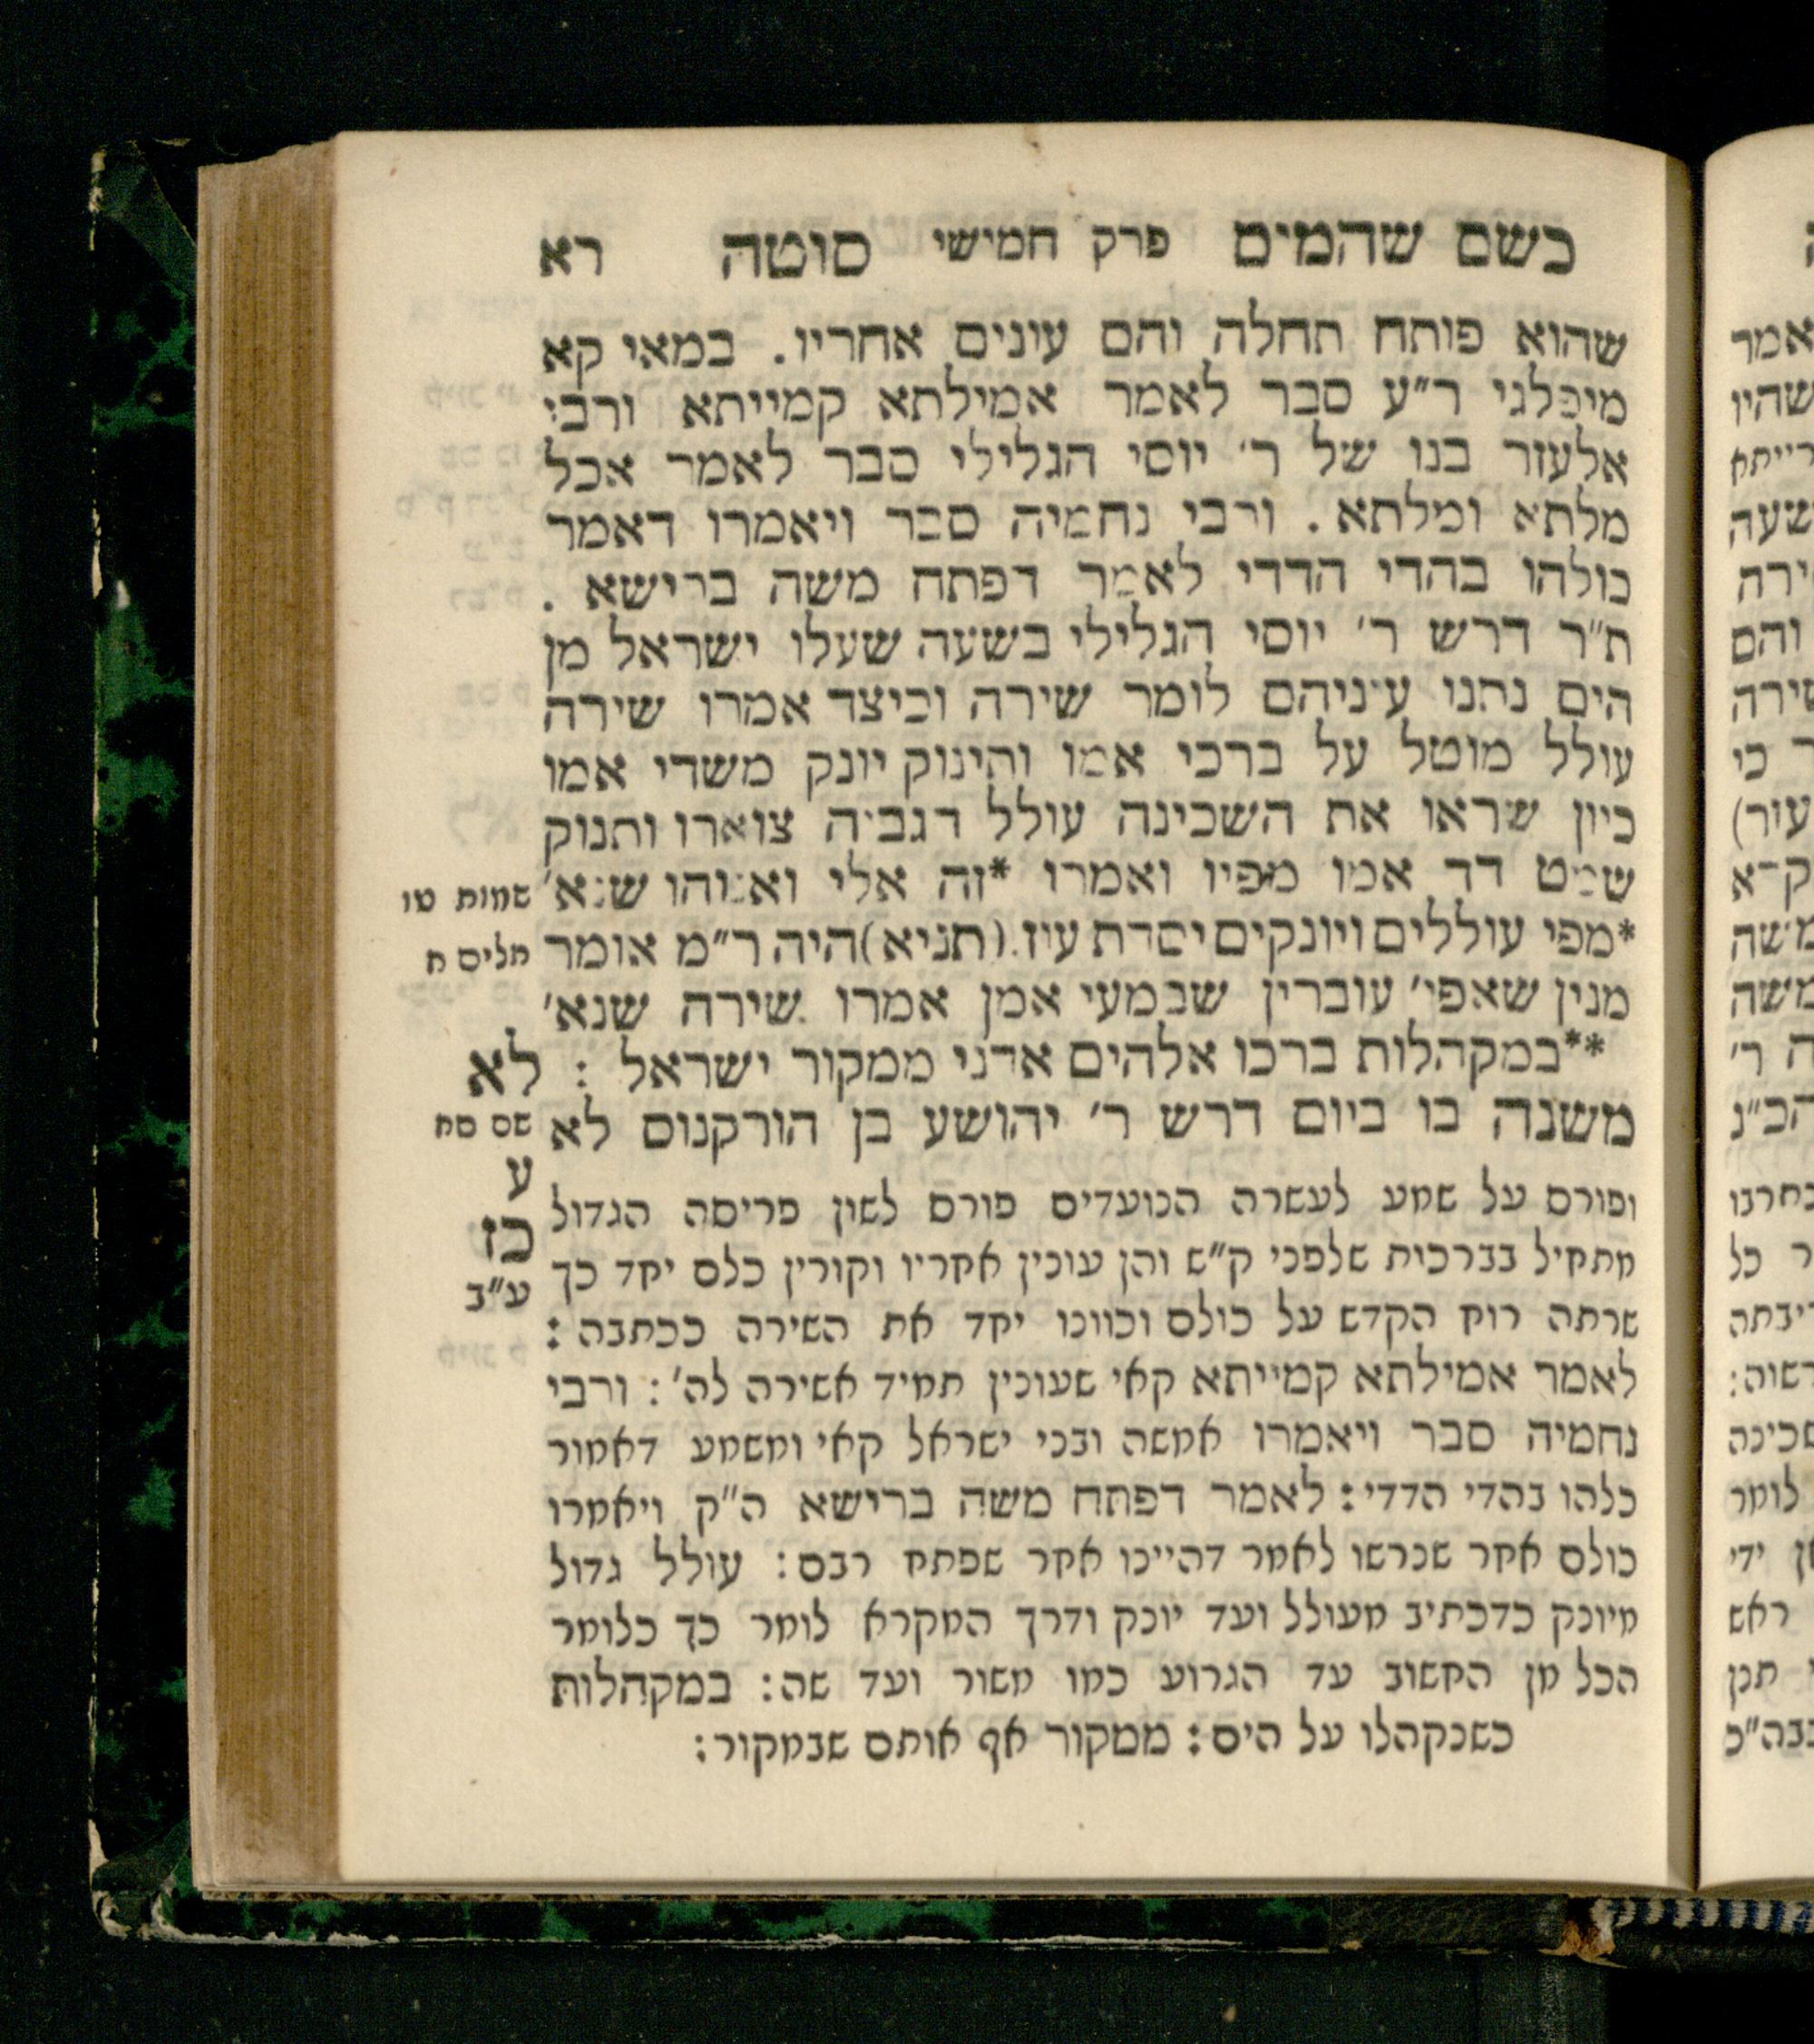 כשם שהמים פרק חמישי סוטה רא
שהוא פותח תחלה והם עונים אחריו. במאי קא
מיפלגי ר״ע סבר לאמר אמילתא קמייתא ורבי
אלעזר בנו של ר׳ יוסי הגלילי סבר לאמר אכל
מלתא ומלתא. ורבי נחמיה סבר ויאמרו דאמר
כולהו בהדי הדדי לאמר דפתח משה ברישא.
ת״ר דרש ר׳ יוסי הגלילי בשעה שעלו ישראל מן
הים נתנו עיניהם לומר שירה וכיצד אמרו שירה
עולל מוטל על ברכי אמו ותינוק יונק משדי אמו
כיון שראו את השכינה עולל הגביה צוארו ותנוק
שמט דד אמו מפיו ואמרו *זה אלי ואנוהו שנא׳
שמות טו
*מפי עוללים ויונקים יסדת עוז. (תניא) היה ר״מ אומר
תלים ח
מנין שאפי׳ עוברין שבמעי אמן אמרו שירה שנא׳
**במקהלות ברכו אלהים אדני ממקור ישראל :
לא
משנה בו ביום דרש ר׳ יהושע בן הורקנום לא
שם סח
ע
כז
ע״ב
ופורס על שמע לעשרה הנועדים פורס לשון פריסה הגדול
מתחיל בברכות שלפני ק״ש והן עונין אחריו וקורין כלם יחד כך
שרתה רוח הקדש על כולם וכוונו יחד את השירה ככתבה :
לאמר אמילתא קמייתא קאי שעונין תמיד אשירה לה׳ : ורבי
נחמיה סבר ויאמרו אמשה ובני ישראל קאי ומשמע דאמור
כלהו בהדי הדדי : לאמר דפתח משה ברישא ה״ק ויאמרו
כולם אחר שנרשו לאמר דהיינו אחר שפתח רבם : עולל גדול
מיונק כדכתיב מעולל ועד יונק ודרך המקרא לומר כך כלומר
הכל מן החשוב עד הגרוע כמו משור ועד שה : במקהלות
כשנקהלו על הים : ממקור אף אותם שבמקור :